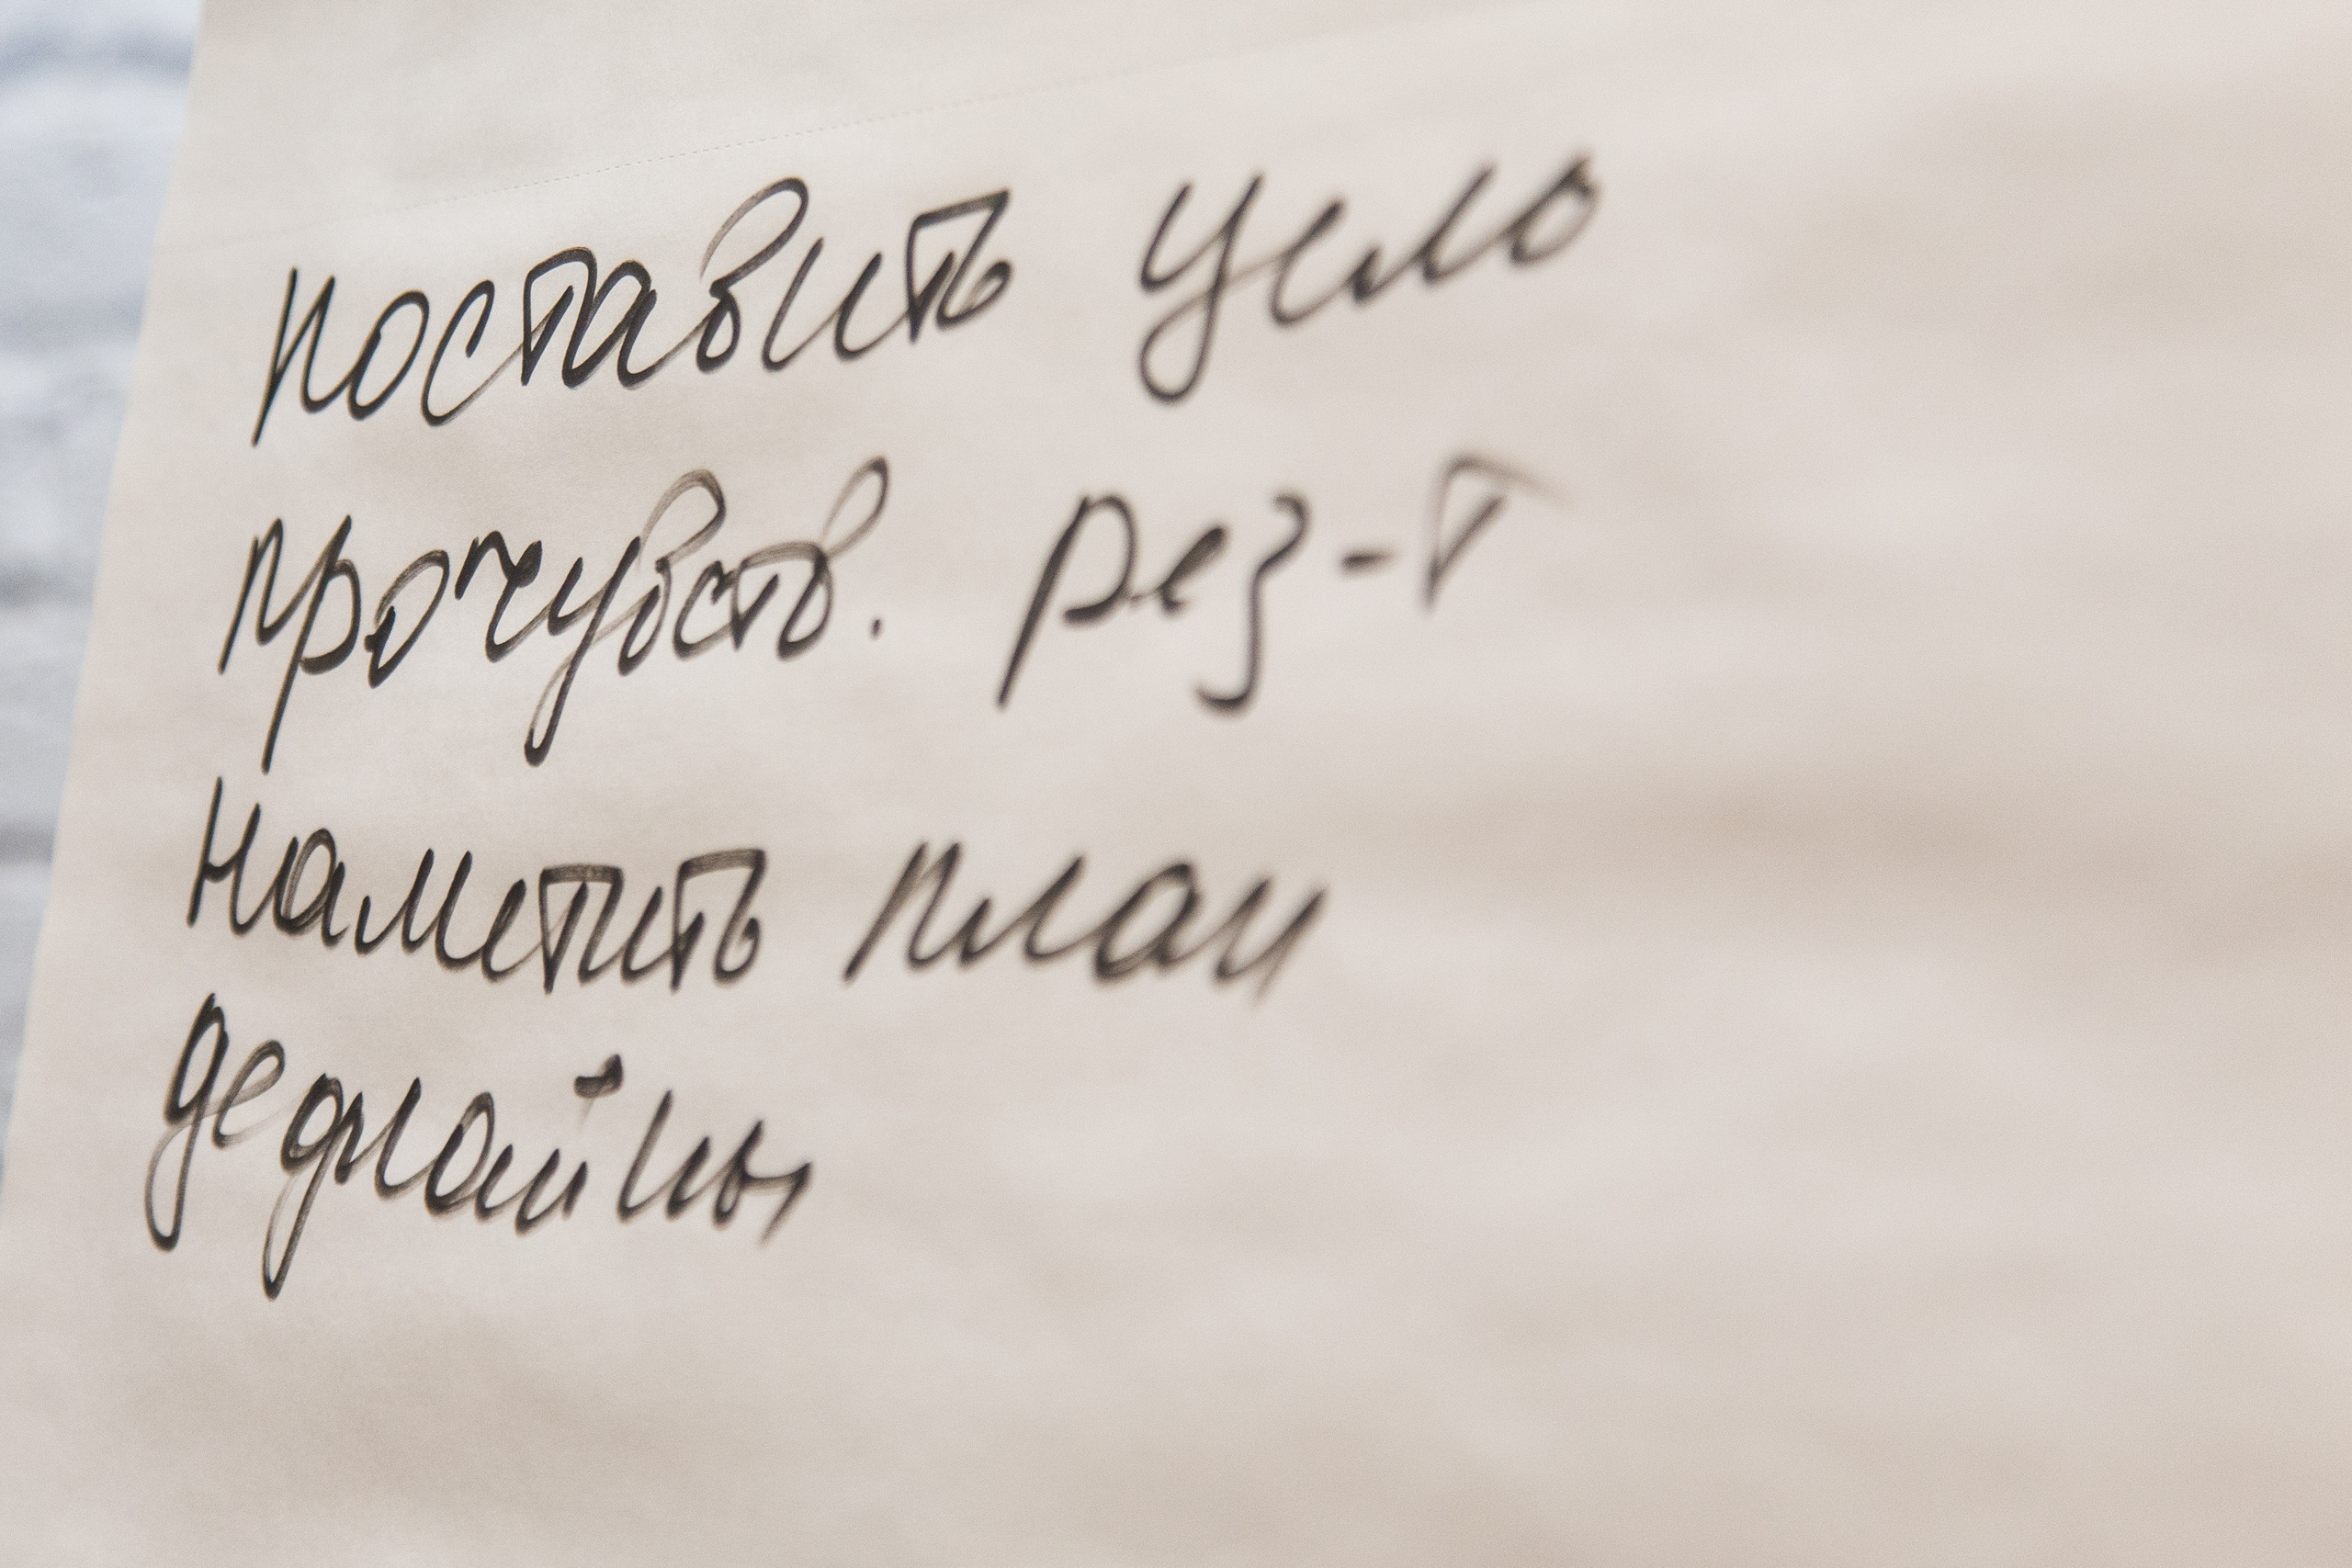 поставить цель
прочувств. рез-т
наметить план
дедлайны